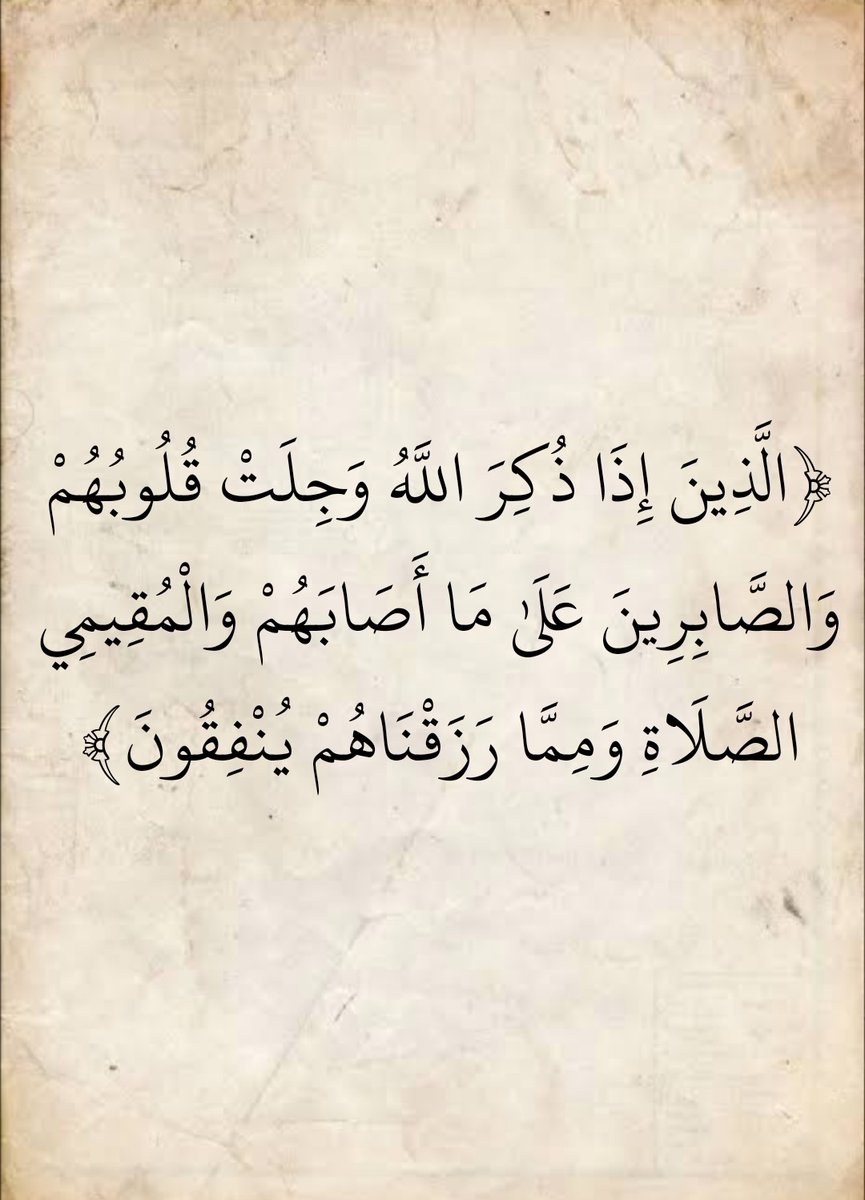 ﴿الَّذِينَ إِذَا ذُكِرَ اللَّهُ وَجِلَتْ قُلُوبُهُمْ
وَالصَّابِرِينَ عَلَىٰ مَا أَصَابَهُمْ وَالْمُقِيمِي
الصَّلَاةِ وَمِمَّا رَزَقْنَاهُمْ يُنْفِقُونَ﴾